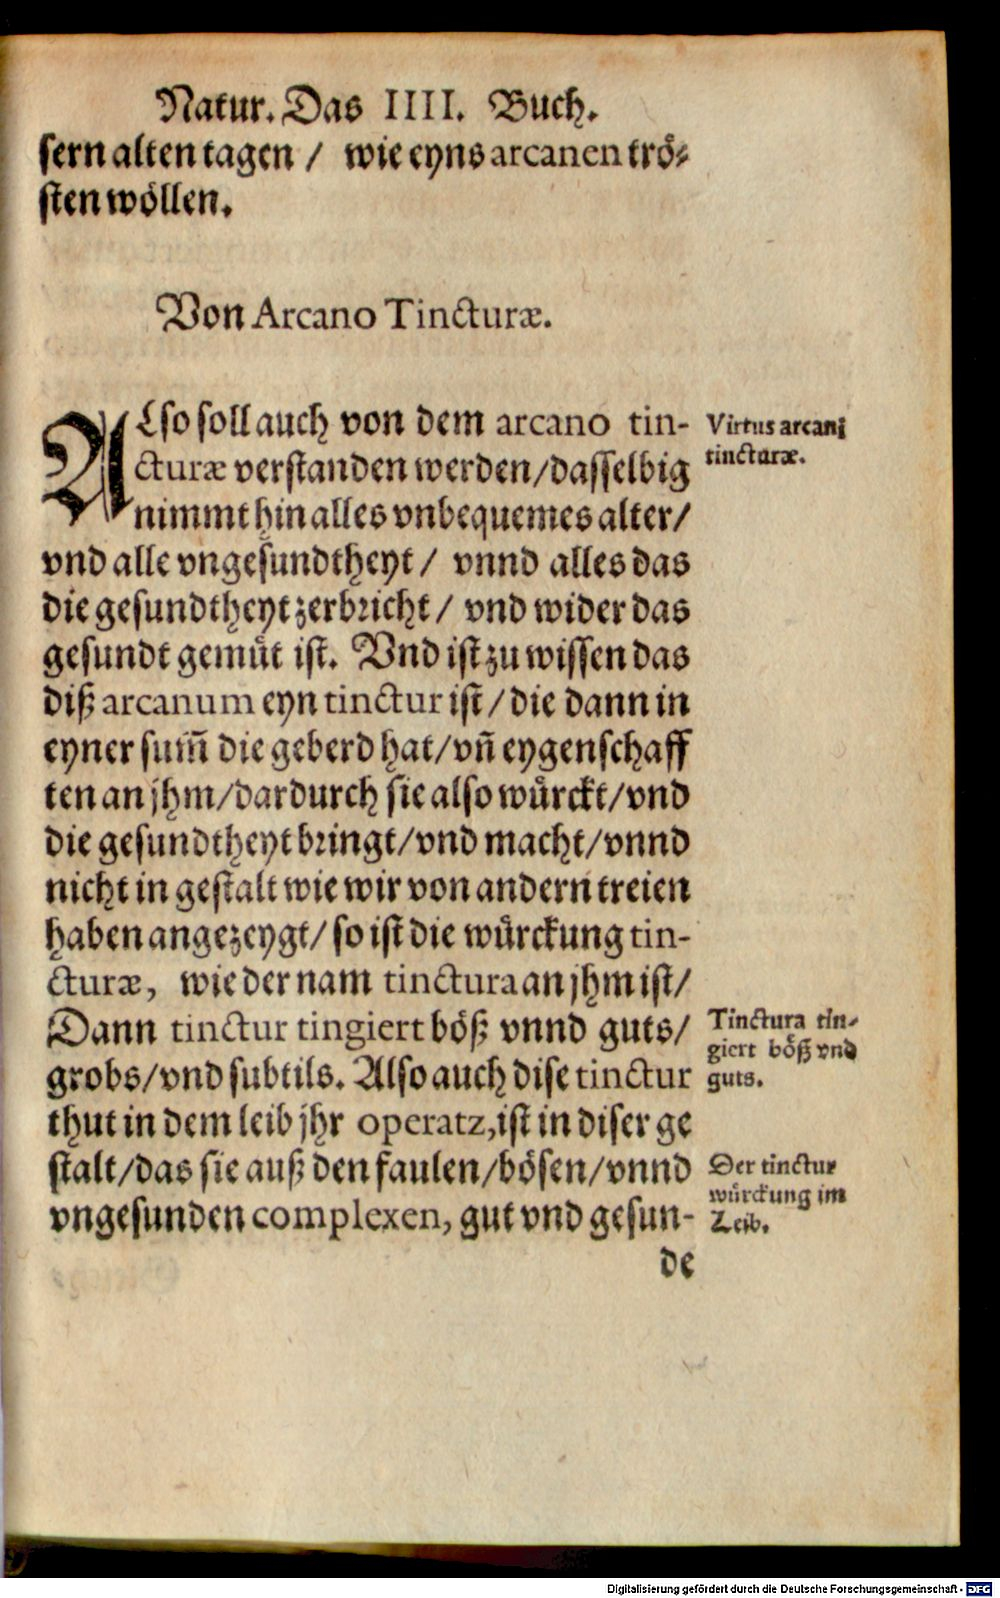 Natur. Das IIII. Buch.
sern alten tagen / wie eyns arcanen trö-
sten wöllen.
Von Arcano Tincturæ.
ALso soll auch von dem arcano tin-
cturæ verstanden werden/dasselbig
nimmt hin alles vnbequemes alter/
vnd alle vngesundtheyt / vnnd alles das
die gesundtheyt zerbricht / vnd wider das
gesundt gemuͤt ist. Vnd ist zu wissen das
diß arcanum eyn tinctur ist / die dann in
eyner sum̃ die geberd hat/vñ eygenschaff
ten an jhm/dardurch sie also wuͤrckt/vnd
die gesundtheyt bringt/vnd macht/vnnd
nicht in gestalt wie wir von andern treien
haben angezeygt/so ist die wuͤrckung tin-
cturæ, wie der nam tinctura an jhm ist/
Dann tinctur tingiert böß vnnd guts/
grobs/vnd subtils. Also auch dise tinctur
thut in dem leib jhr operatz, ist in diser ge
stalt/das sie auß den faulen/bösen/vnnd
vngesunden complexen, gut vnd gesun-
de
Virtus arcani
tincturæ.
Tinctura tin-
giert böß vnd
guts.
Der tinctur
wuͤrckung im
Leib.
Digitalisierung gefördert durch die Deutsche Forschungsgemeinschaft - DFG